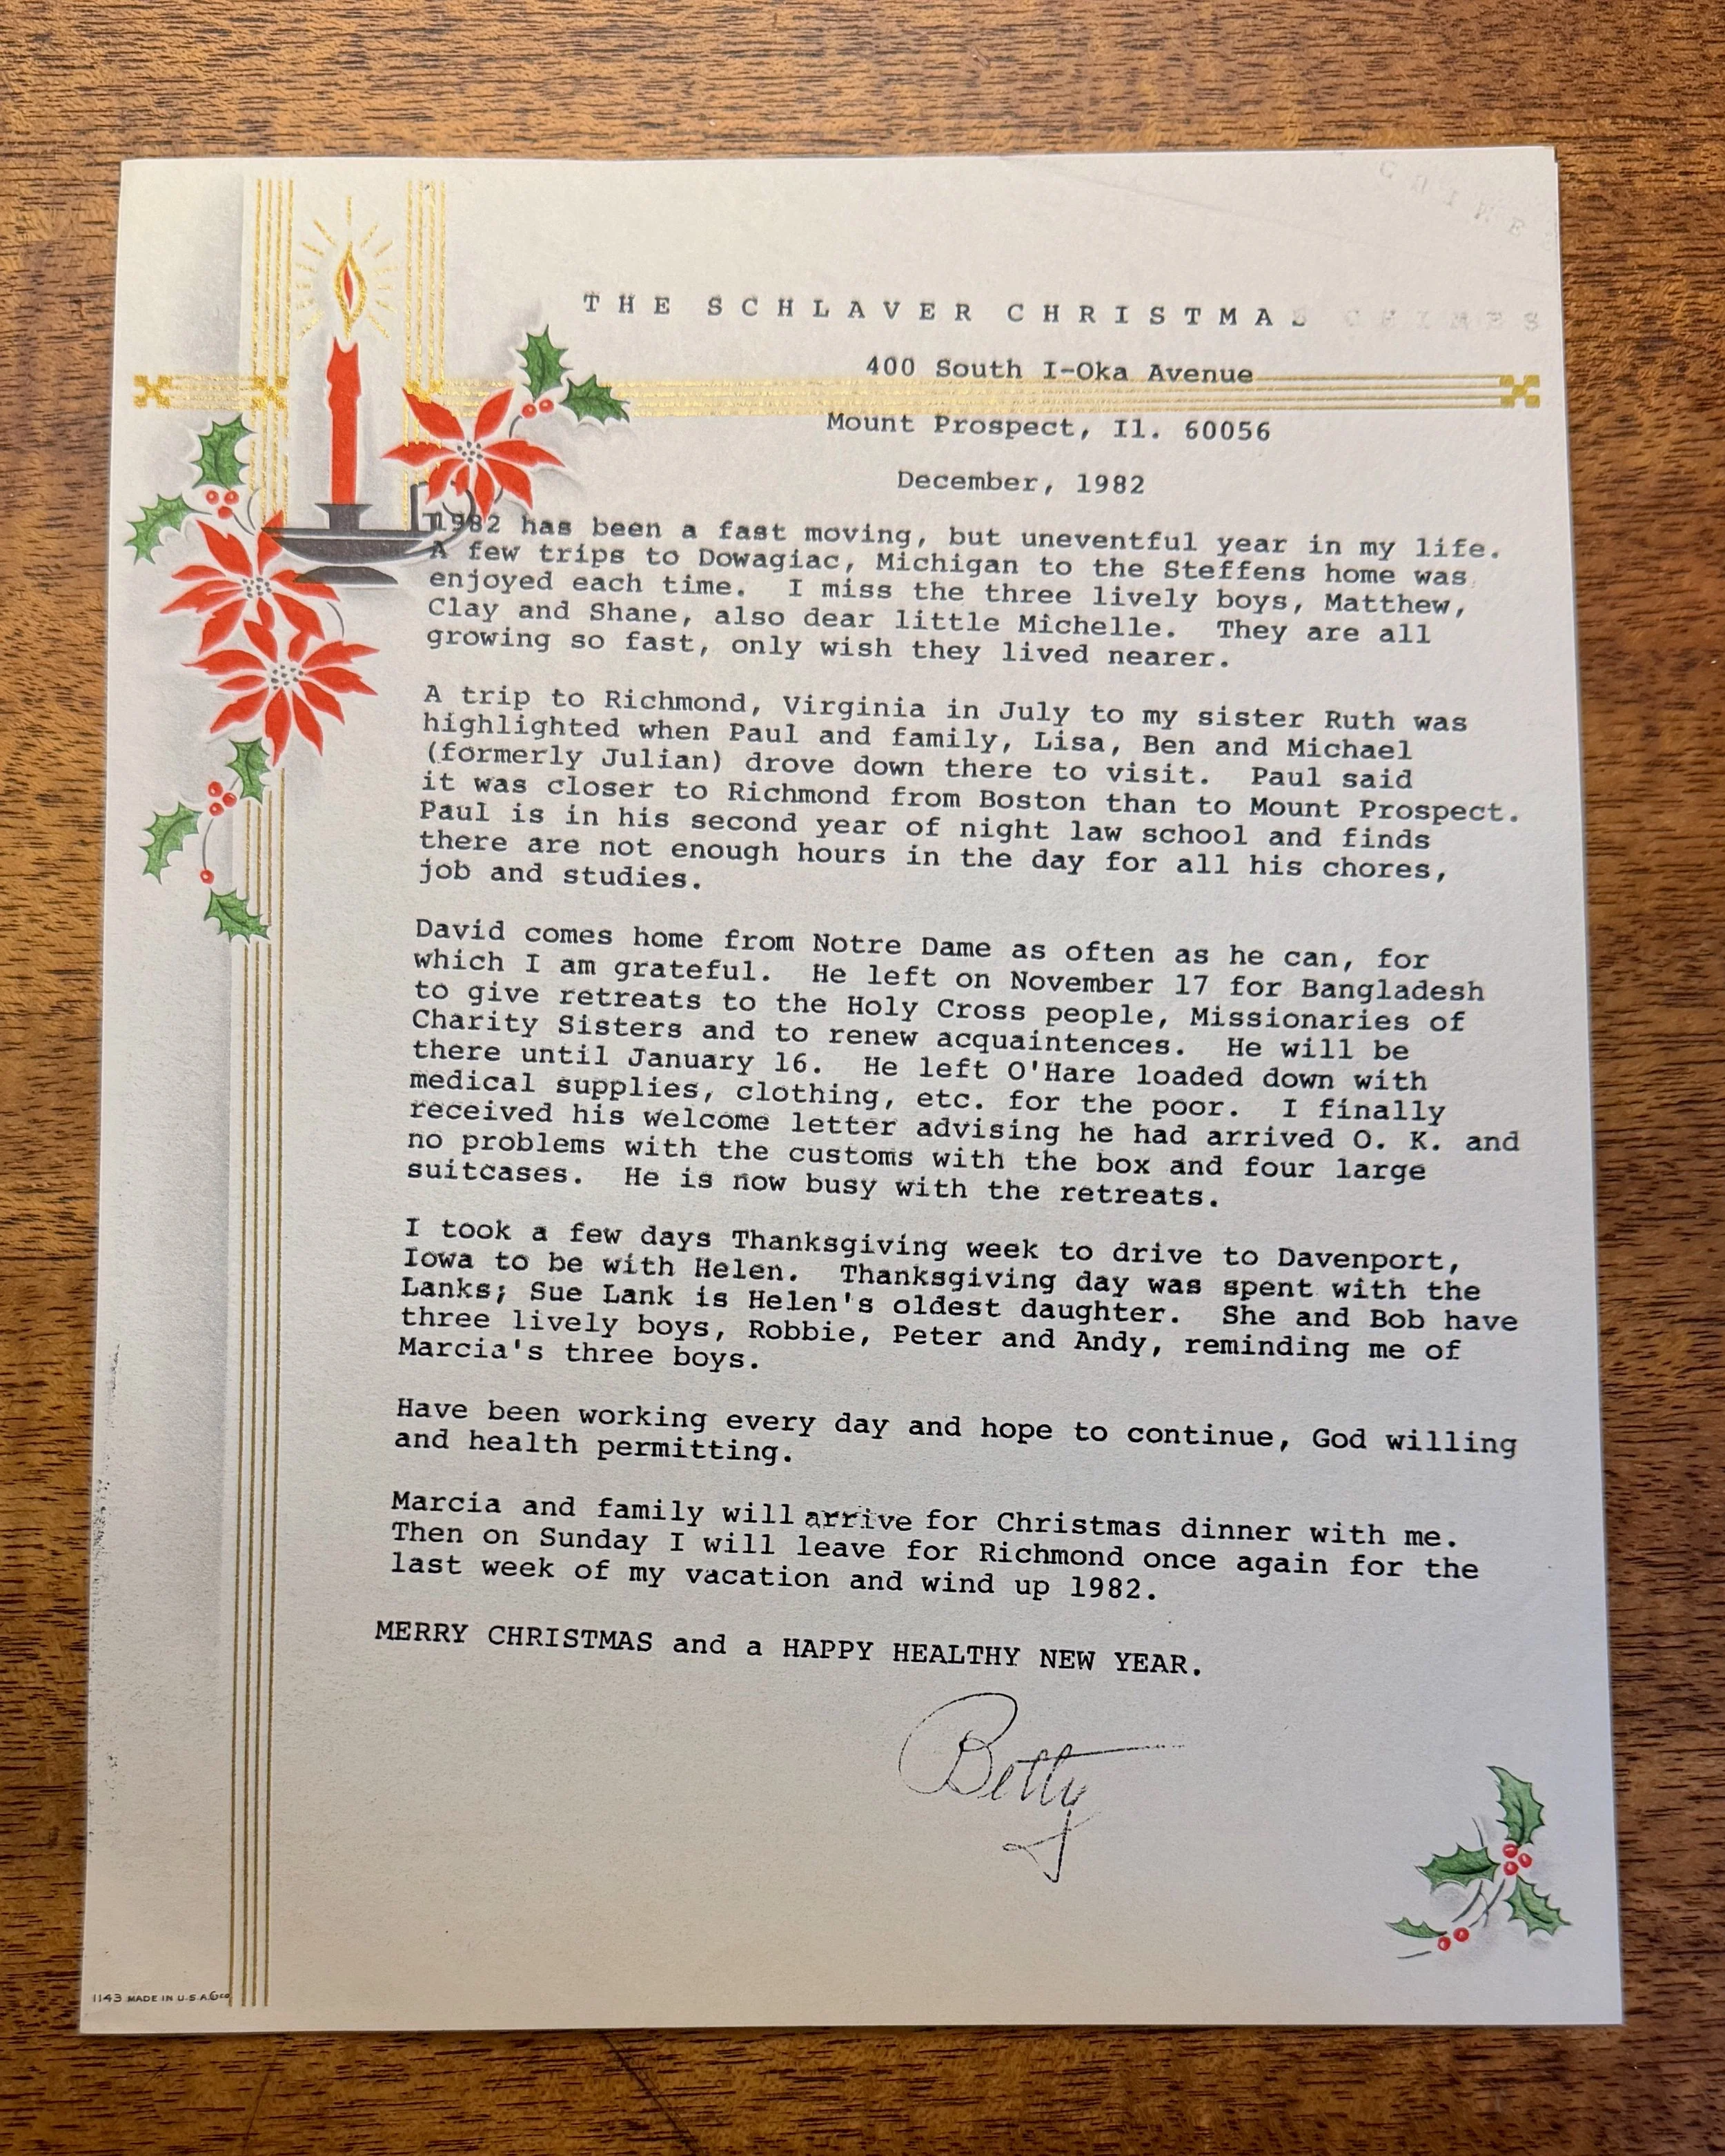 CHIMES
THE SCHLAVER CHRISTMAS CHIMES
400 South I-Oka Avenue
Mount Prospect, Il. 60056
December, 1982
1982 has been a fast moving, but uneventful year in my life.
A few trips to Dowagiac, Michigan to the Steffens home was
enjoyed each time. I miss the three lively boys, Matthew,
Clay and Shane, also dear little Michelle. They are all
growing so fast, only wish they lived nearer.
A trip to Richmond, Virginia in July to my sister Ruth was
highlighted when Paul and family, Lisa, Ben and Michael
(formerly Julian) drove down there to visit. Paul said
it was closer to Richmond from Boston than to Mount Prospect.
Paul is in his second year of night law school and finds
there are not enough hours in the day for all his chores,
job and studies.
David comes home from Notre Dame as often as he can, for
which I am grateful. He left on November 17 for Bangladesh
to give retreats to the Holy Cross people, Missionaries of
Charity Sisters and to renew acquaintences. He will be
there until January 16. He left O'Hare loaded down with
medical supplies, clothing, etc. for the poor. I finally
received his welcome letter advising he had arrived O. K. and
no problems with the customs with the box and four large
suitcases. He is now busy with the retreats.
I took a few days Thanksgiving week to drive to Davenport,
Iowa to be with Helen. Thanksgiving day was spent with the
Lanks; Sue Lank is Helen's oldest daughter. She and Bob have
three lively boys, Robbie, Peter and Andy, reminding me of
Marcia's three boys.
Have been working every day and hope to continue, God willing
and health permitting.
Marcia and family will arrive for Christmas dinner with me.
Then on Sunday I will leave for Richmond once again for the
last week of my vacation and wind up 1982.
MERRY CHRISTMAS and a HAPPY HEALTHY NEW YEAR.
Betty
1143 MADE IN U.S.A.